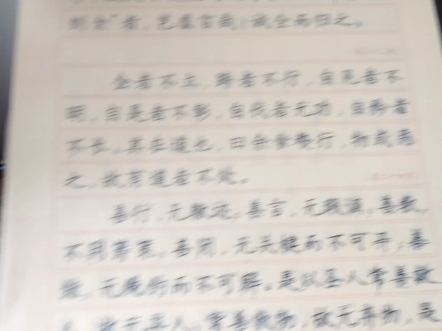 则全"者，岂虚言哉！诚全而归之。
企者不立，跨者不行，自见者不
明，自是者不彰，自伐者无功，自矜者
不长。其在道也，曰余食赘行，物或恶
之，故有道者不处。
善行，无辙迹；善言，无瑕谪；善数，
不用筹策；善闭，无关楗而不可开；善
结，无绳约而不可解。是以圣人常善救
人，故无弃人；常善救物，故无弃物，是